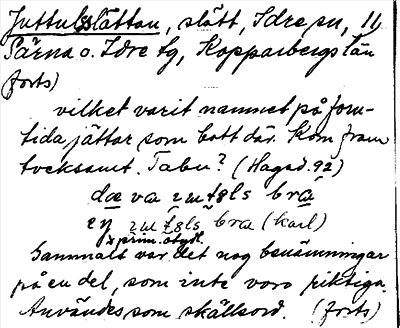 Juttulslåttan, slått, Idre sn, 11
Särna o. Idre tg, Kopparbergs län
(forts)
vilket varit namnet på forn-
tida jättar som bott där. Kom fram
tveksamt. Tabu? (Hagad. 92)
dæ va bra
bra (karl)
x prim. otydl.
Gammalt var det nog benämningar
på en del, som inte voro riktiga.
Användes som skällsord. (forts)